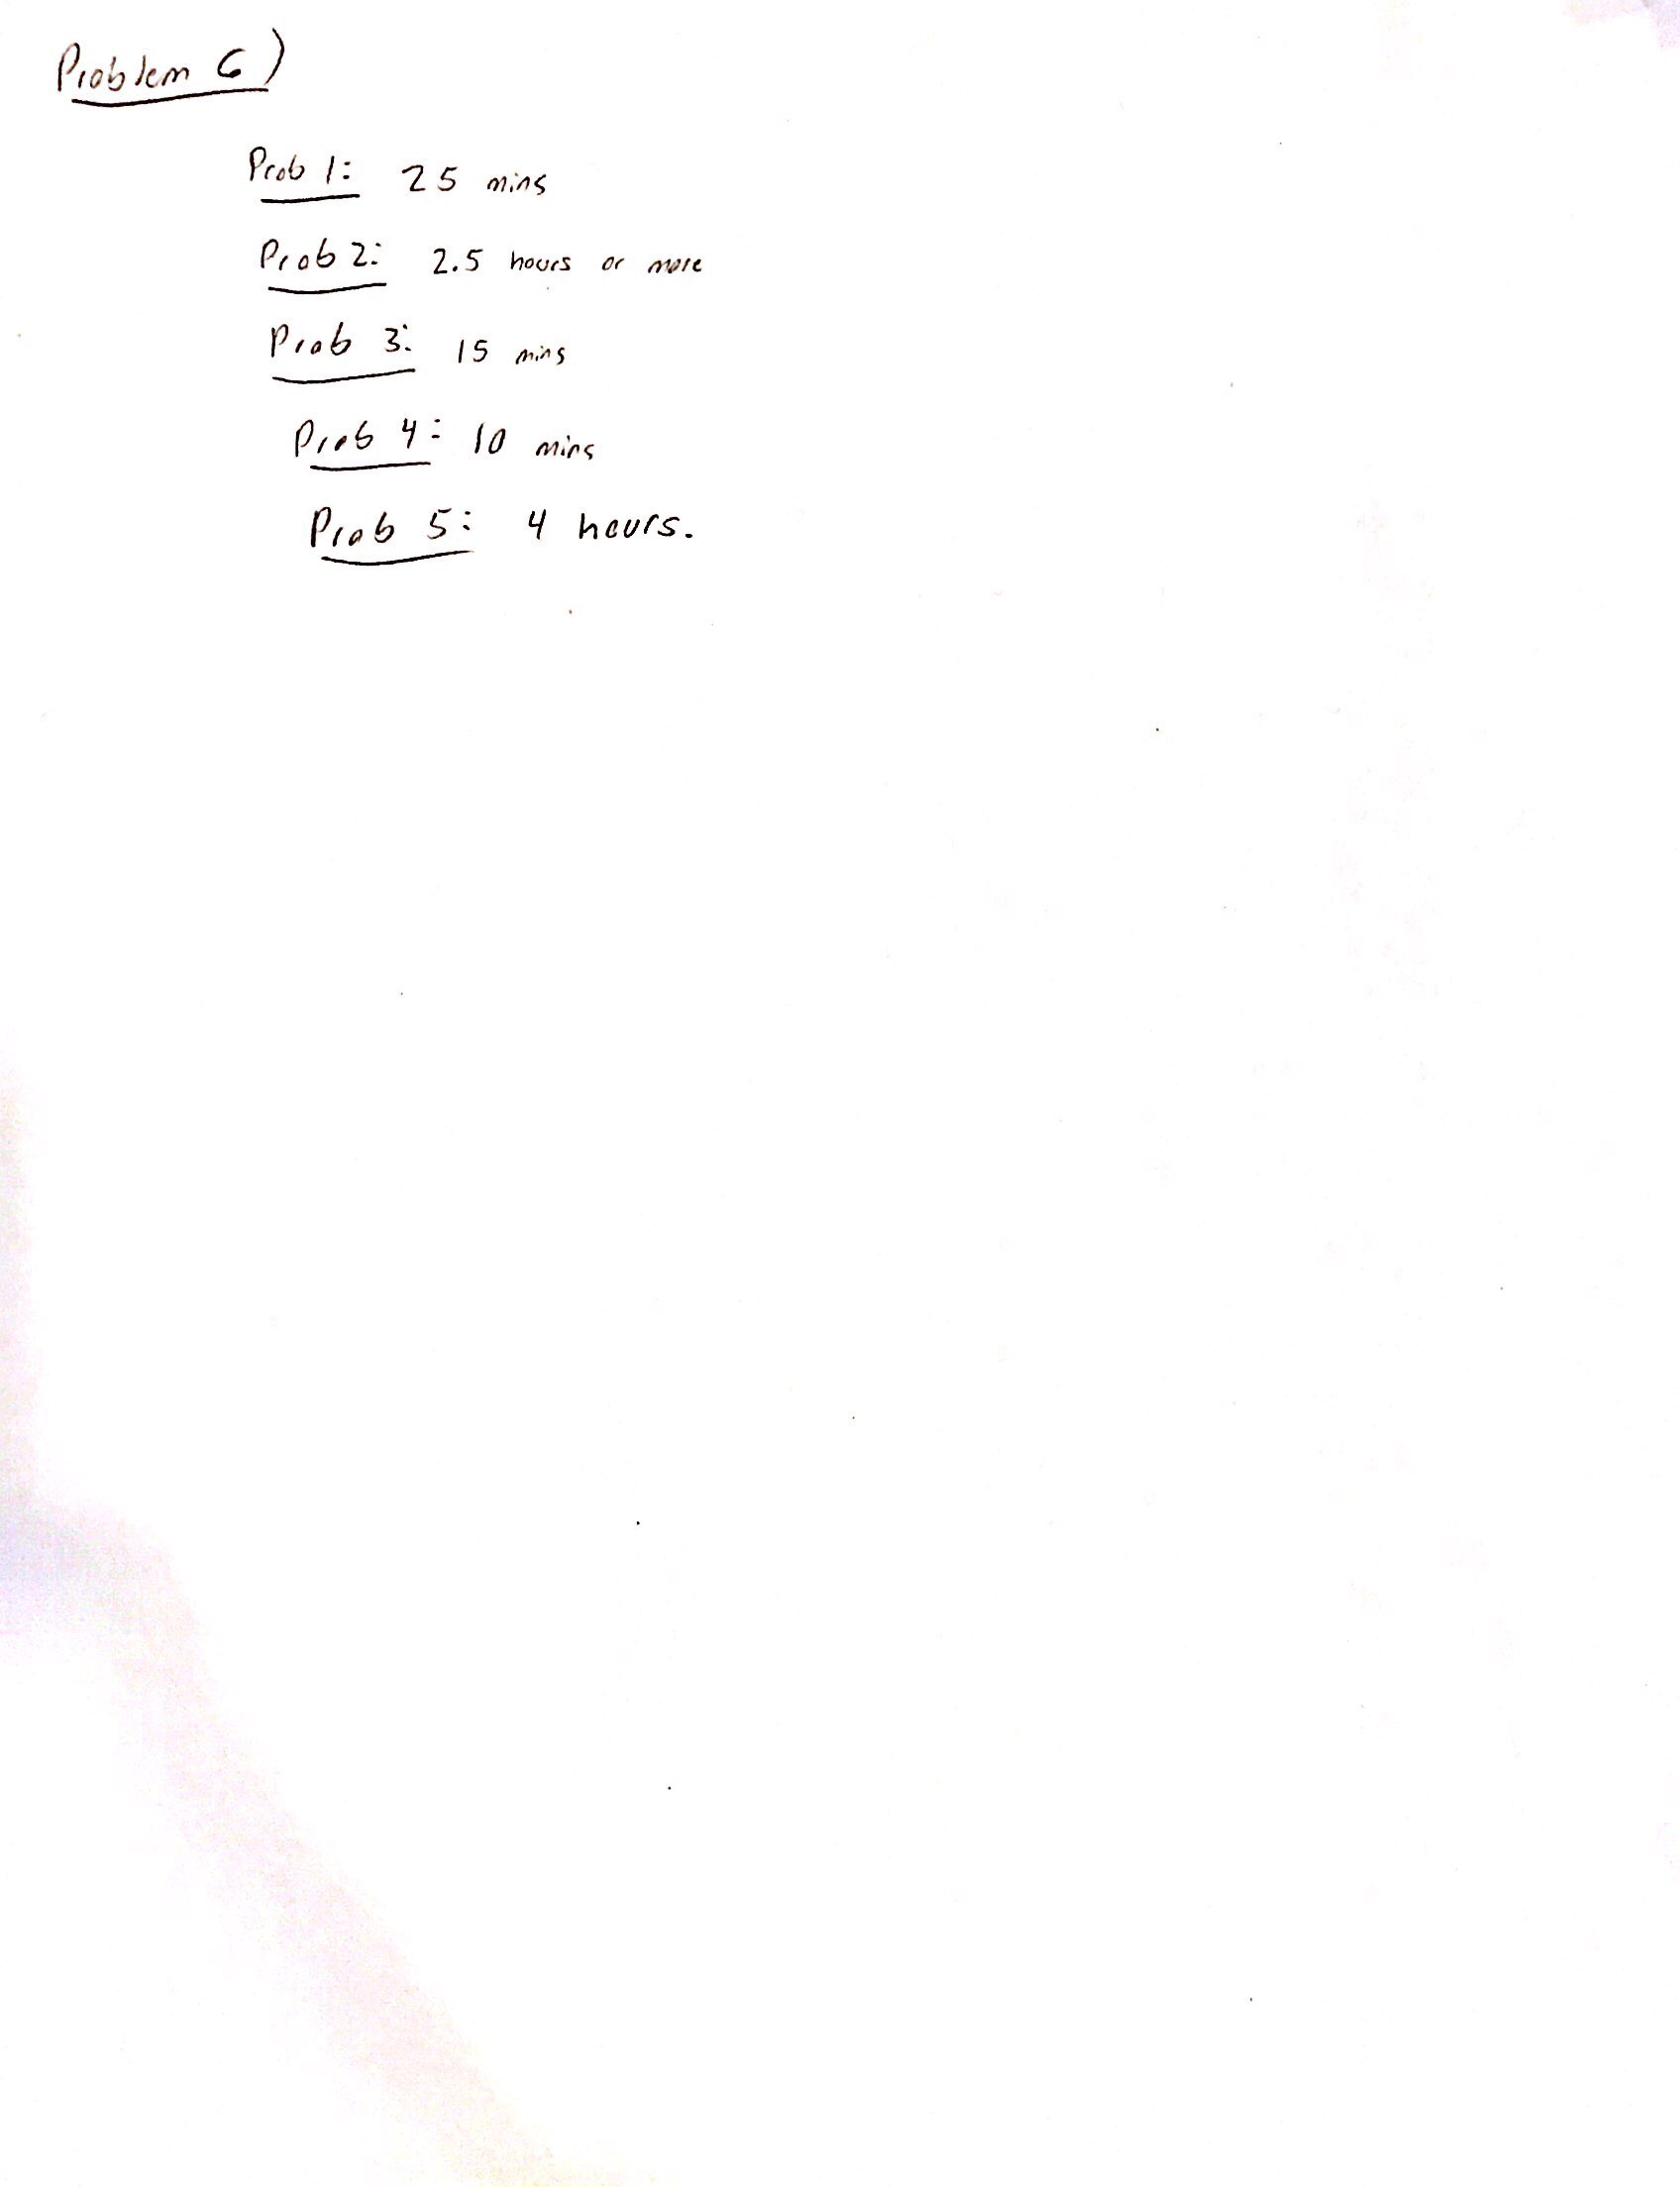 Problem 6)
Prob 1: 25 mins
Prob 2: 2.5 hours or more
Prob 3: 15 mins
Prob 4: 10 mins
Prob 5: 4 hours.